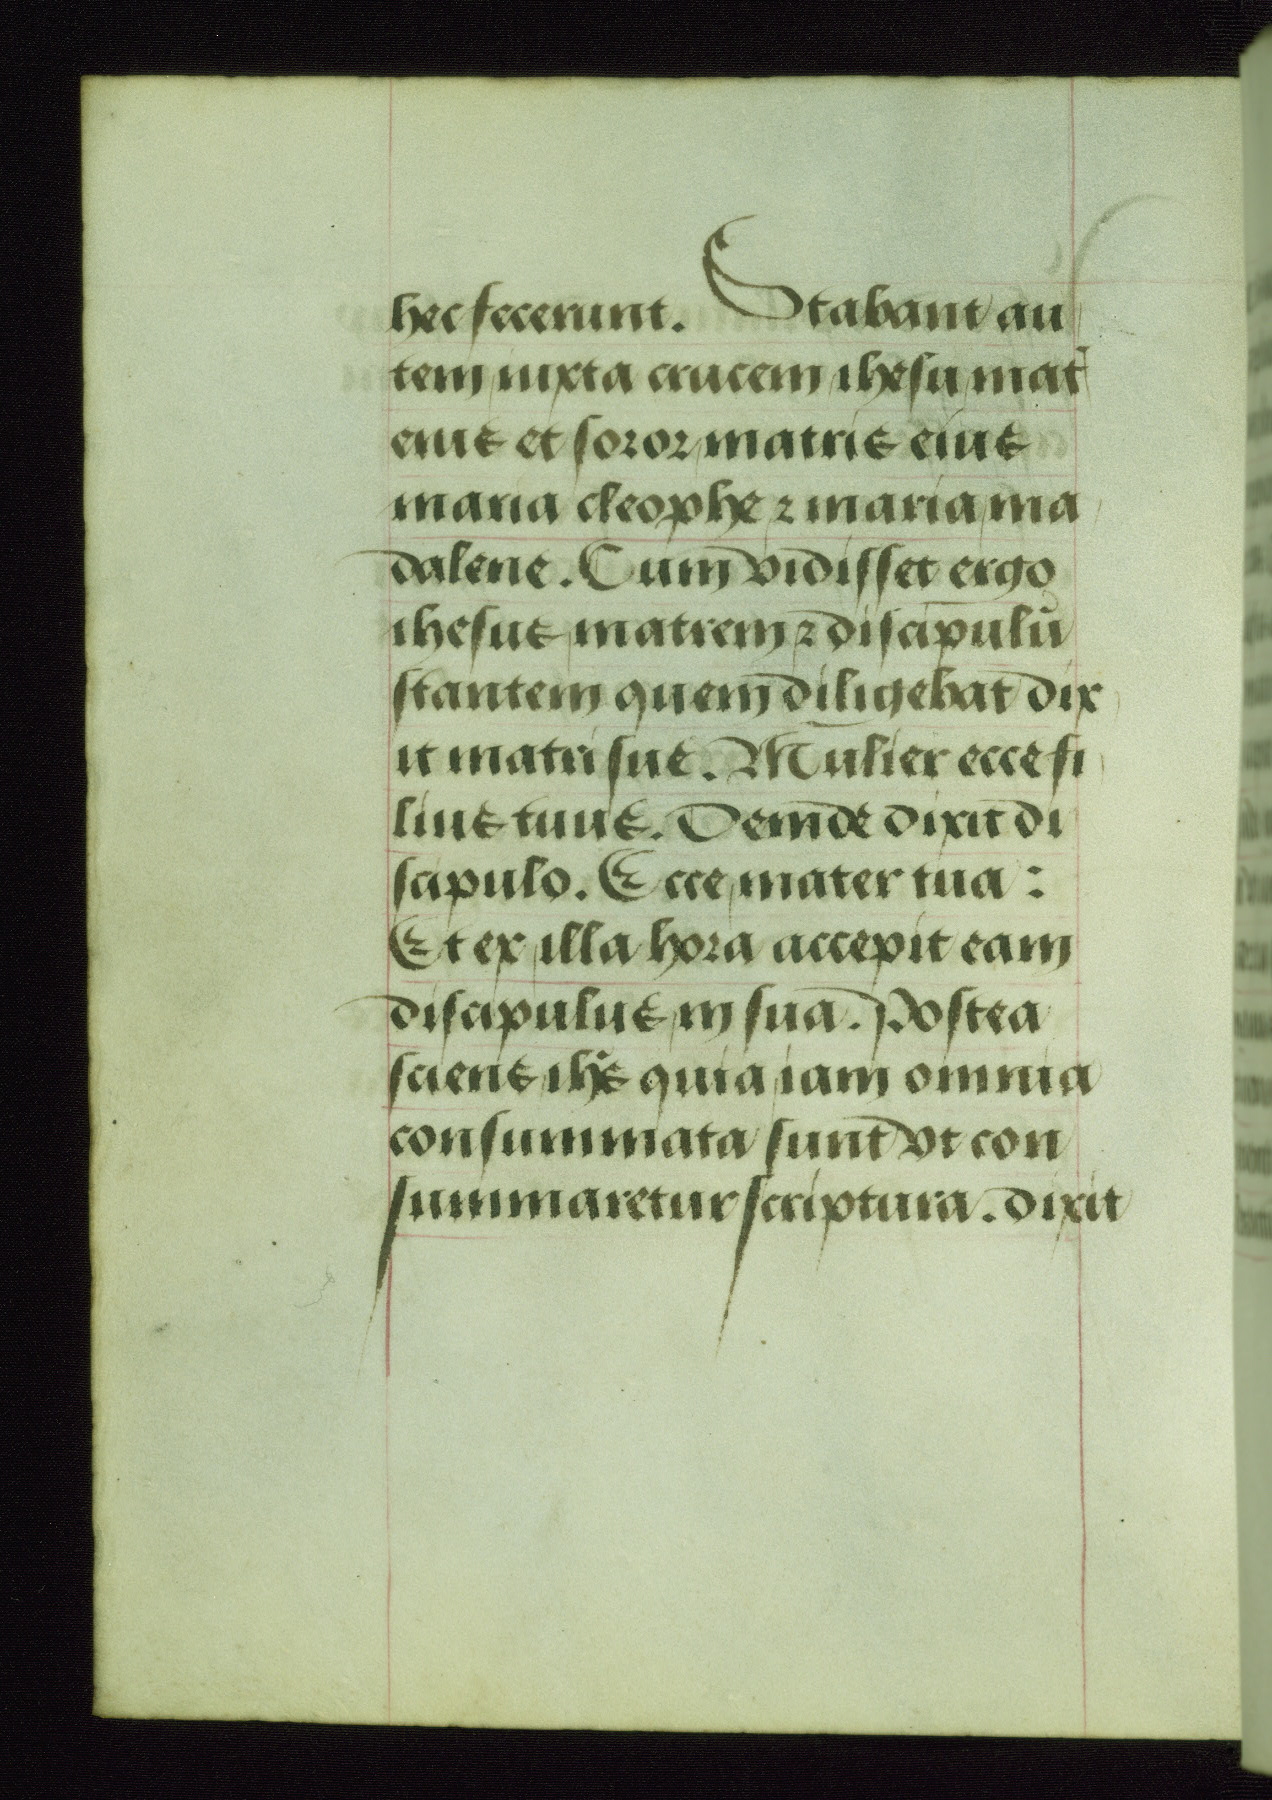 hec fecerunt. Stabant au
tem iuxta crucem ihesu mat᷑
eius et soror matris eius
maria cleophe ⁊ maria ma
dalene. Cum vidisset ergo
ihesus matrem ⁊ discipulū
stantem quem diligebat dix
it matri sue. Mulier ecce fi
lius tuus. Deinde dixit di
scipulo. Ecce mater tua :
Et ex illa hora accepit eam
discipulus in sua. Postea
sciens ihs̄ quia iam omnia
consummata sunt vt con
summaretur scriptura. dixit